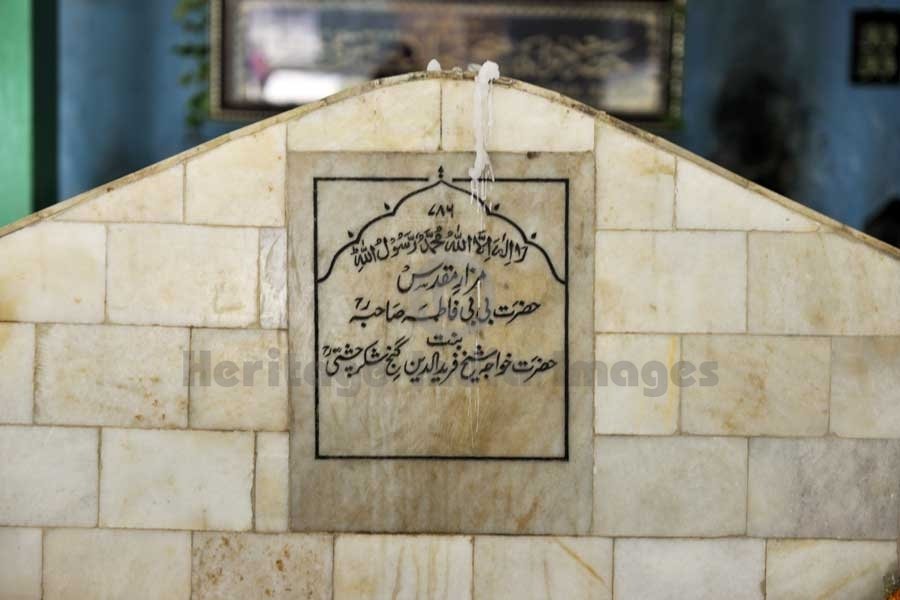 ٧٨٦
لا اله الا الله محمد رسول الله
مزار مقدس
حضرت بی بی فاطمہ صاحبہ رح
بنت
حضرت خواجہ شیخ فرید الدین گنج شکر چشتی رح
Heritage Images